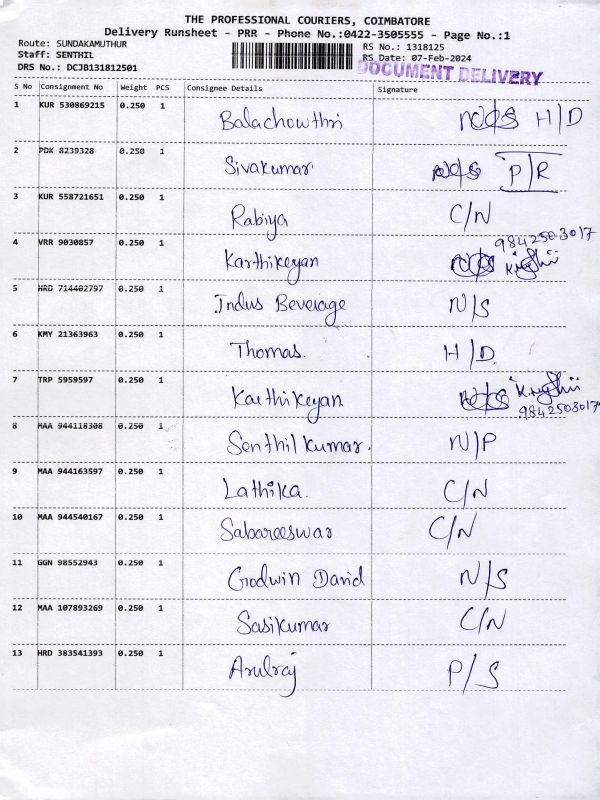 THE PROFESSIONAL COURIERS, COIMBATORE
Delivery Runsheet - PRR - Phone No.:0422-3505555 - Page No.:1
Route: SUNDAKAMUTHUR
Staff: SENTHIL
DRS No.: DCJB131812501
RS No.: 1318125
RS Date: 07-Feb-2024
DOCUMENT DELIVERY
S No Consignment No Weight PCS Consignee Details Signature
1 KUR 530869215 0.250 1 Balachowthri H/D
2 PDK 8239328 0.250 1 Sivakumar P/R
3 KUR 558721651 0.250 1 Rabiya C/N
4 VRR 9030857 0.250 1 Karthikeyan 9842503017
5 HRD 714402797 0.250 1 Indus Beverage N/S
6 KMY 21363963 0.250 1 Thomas. H/D.
7 TRP 5959597 0.250 1 Karthikeyan 9842503017
8 MAA 944118308 0.250 1 Senthil kumar. N/P
9 MAA 944163597 0.250 1 Lathika. C/N
10 MAA 944540167 0.250 1 Sabareeswar C/N
11 GGN 98552943 0.250 1 Godwin David N/S
12 MAA 107893269 0.250 1 Sasikumar C/N
13 HRD 383541393 0.250 1 Arulraj P/S